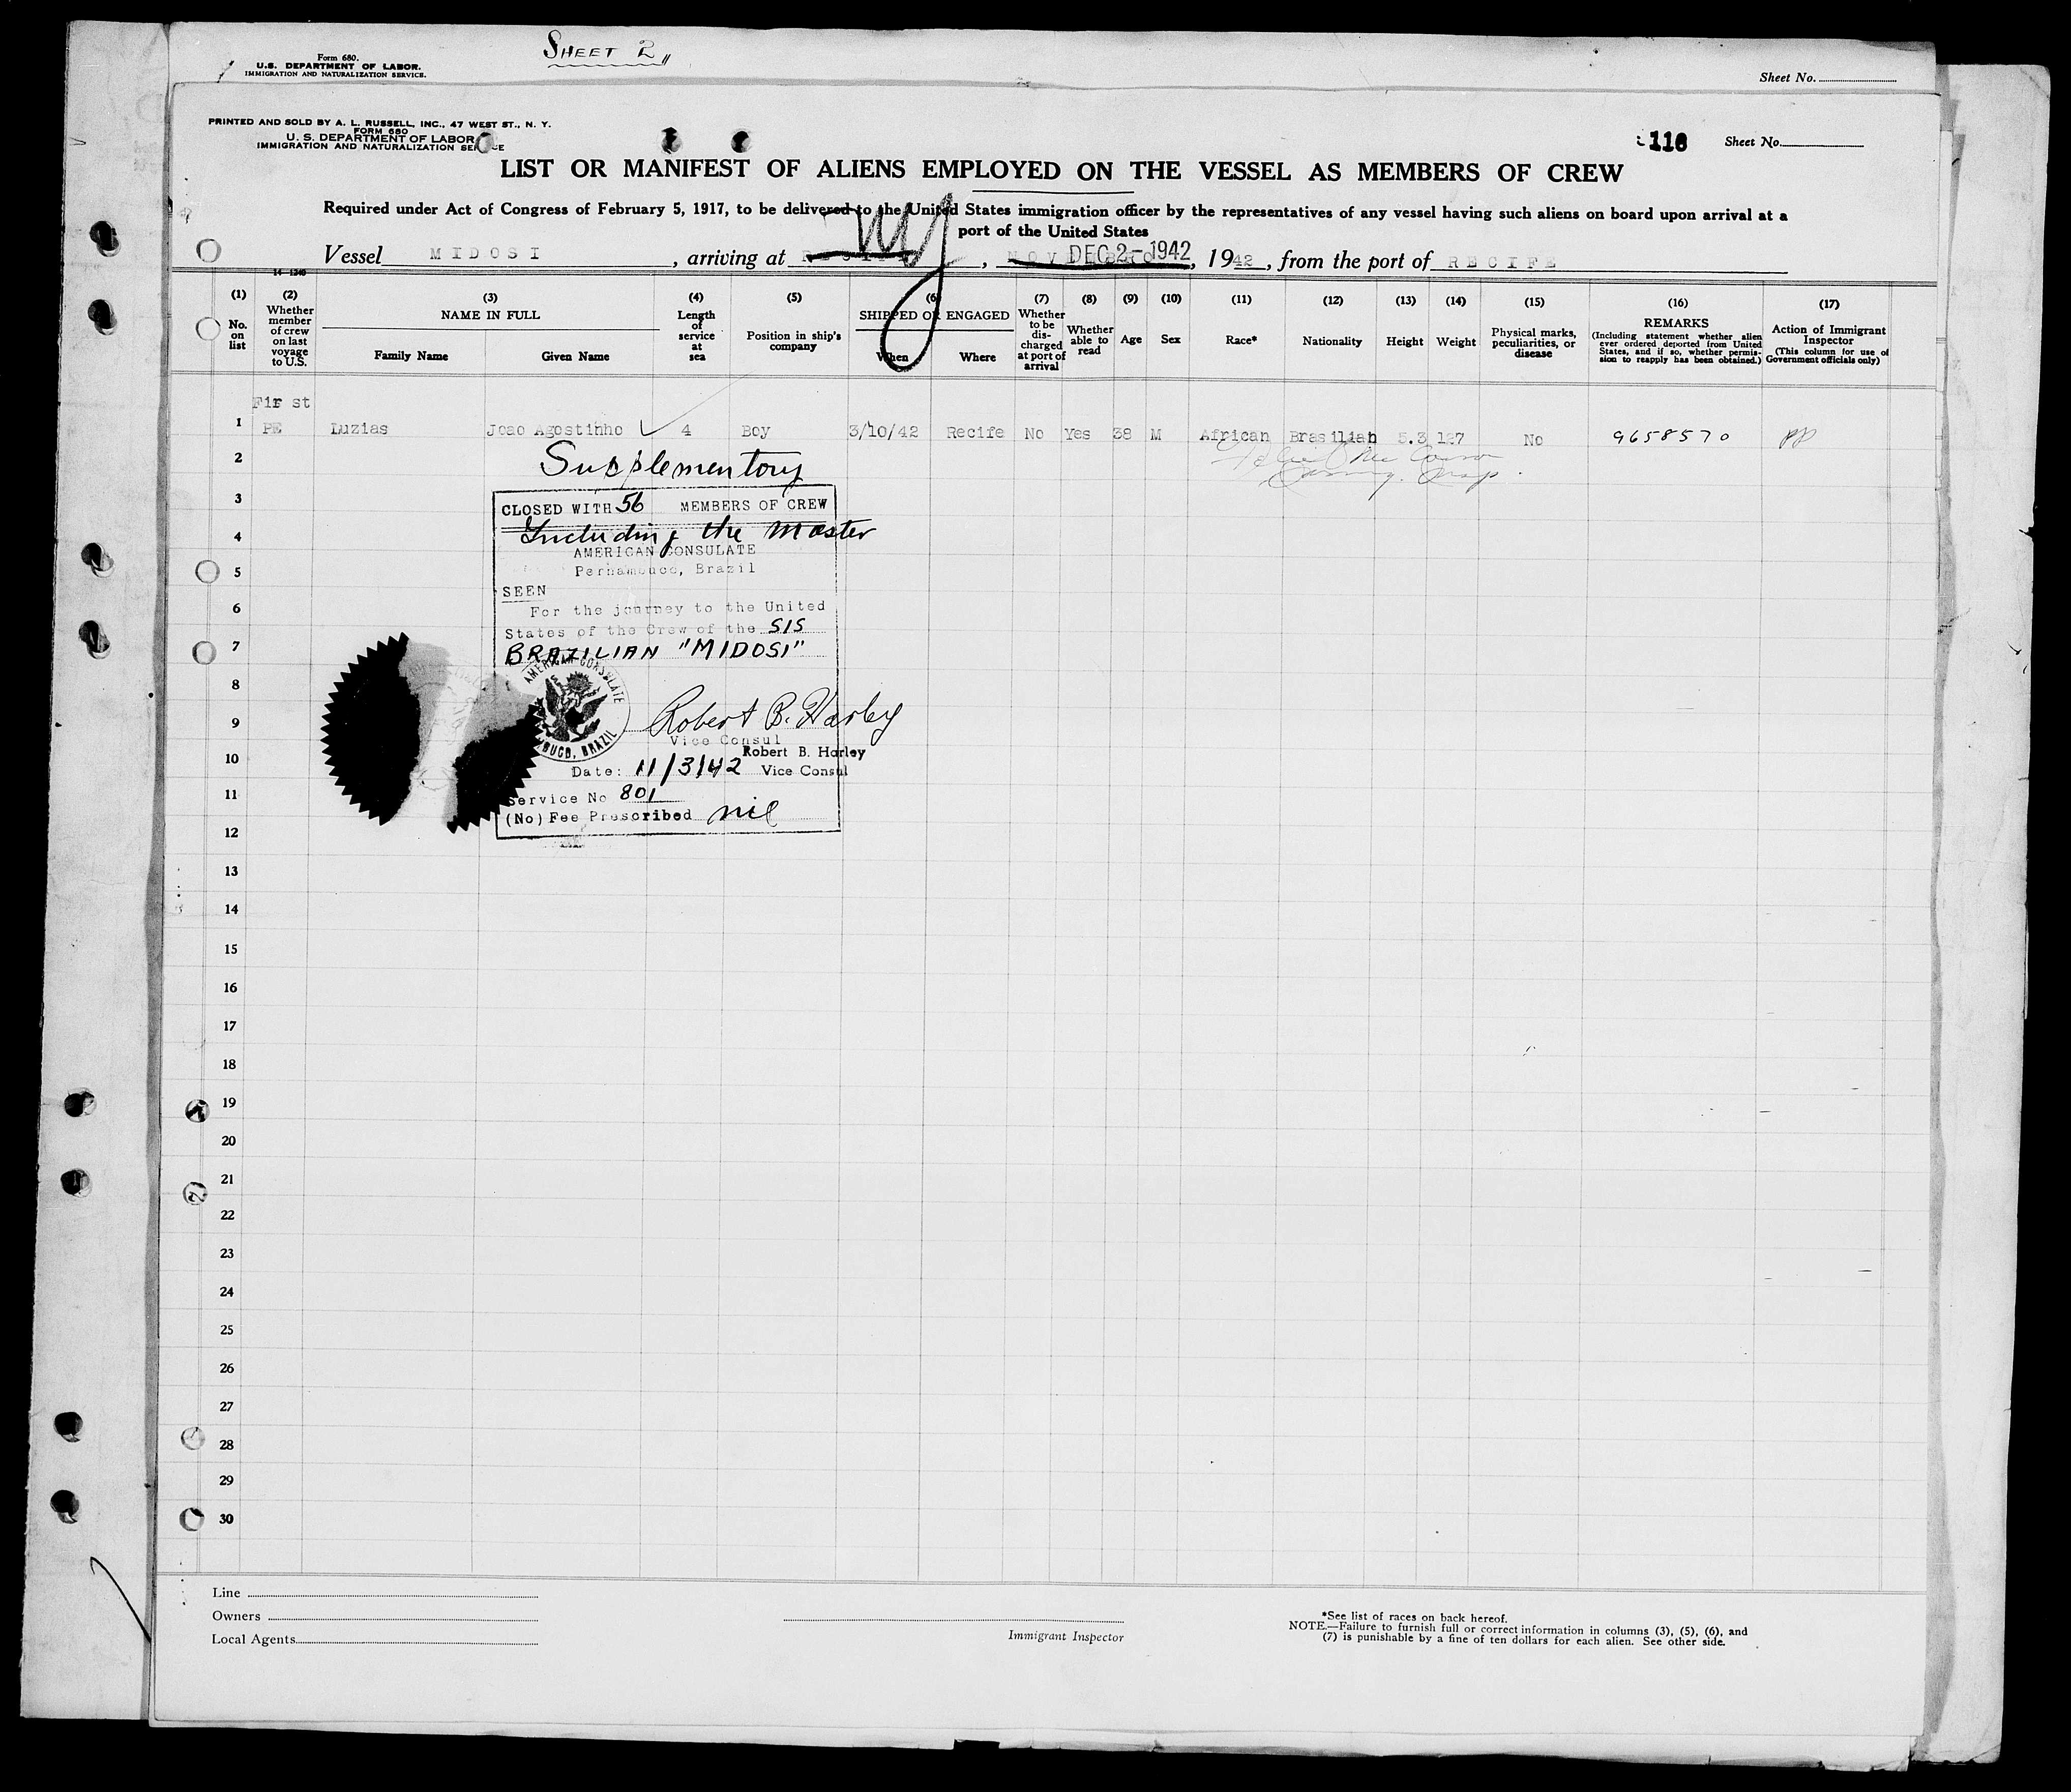 Form 680.
U.S. DEPARTMENT OF LABOR.
IMMIGRATION AND NATURALIZATION SERVICE.
SHEET 2
Sheet No.
PRINTED AND SOLD BY A. L. RUSSELL, INC., 47 WEST ST., N. Y.
FORM 680
U. S. DEPARTMENT OF LABOR
IMMIGRATION AND NATURALIZATION SERVICE
116 Sheet No.
LIST OR MANIFEST OF ALIENS EMPLOYED ON THE VESSEL AS MEMBERS OF CREW
Required under Act of Congress of February 5, 1917, to be delivered to the United States immigration officer by the representatives of any vessel having such aliens on board upon arrival at a
port of the United States
Vessel MIDOSI, arriving at NY, DEC 2-1942, 1942, from the port of RECIFE
14-1240
(1) No. on list
(2) Whether member of crew on last voyage to U.S.
(3) NAME IN FULL Family Name Given Name
(4) Length of service at sea
(5) Position in ship's company
(6) SHIPPED OR ENGAGED When Where
(7) Whether to be discharged at port of arrival
(8) Whether able to read
(9) Age
(10) Sex
(11) Race*
(12) Nationality
(13) Height
(14) Weight
(15) Physical marks, peculiarities, or disease
(16) REMARKS (Including statement whether alien ever ordered deported from United States, and if so, whether permission to reapply has been obtained.)
(17) Action of Immigrant Inspector (This column for use of Government officials only)
First
1 PE Luzias Joao Agostinho 4 Boy 3/10/42 Recife No Yes 38 M African Brasilian 5.3 127 No 9658570 PP
2 Supplementory
3 CLOSED WITH 56 MEMBERS OF CREW
4 Including the master
AMERICAN CONSULATE
5 Pernambuco, Brazil
SEEN
6 For the journey to the United
States of the Crew of the S/S
7 BRAZILIAN "MIDOSI"
AMERICAN CONSULATE
8
9 Robert B. Harley
Vice Consul
BUCO, BRAZIL
10 Robert B. Harley
Date: 11/3/42 Vice Consul
11 Service No 801
(No) Fee Prescribed nil
12
13
14
15
16
17
18
19
20
21
22
23
24
25
26
27
28
29
30
Line
Owners
Local Agents
Immigrant Inspector
*See list of races on back hereof.
NOTE.—Failure to furnish full or correct information in columns (3), (5), (6), and
(7) is punishable by a fine of ten dollars for each alien. See other side.